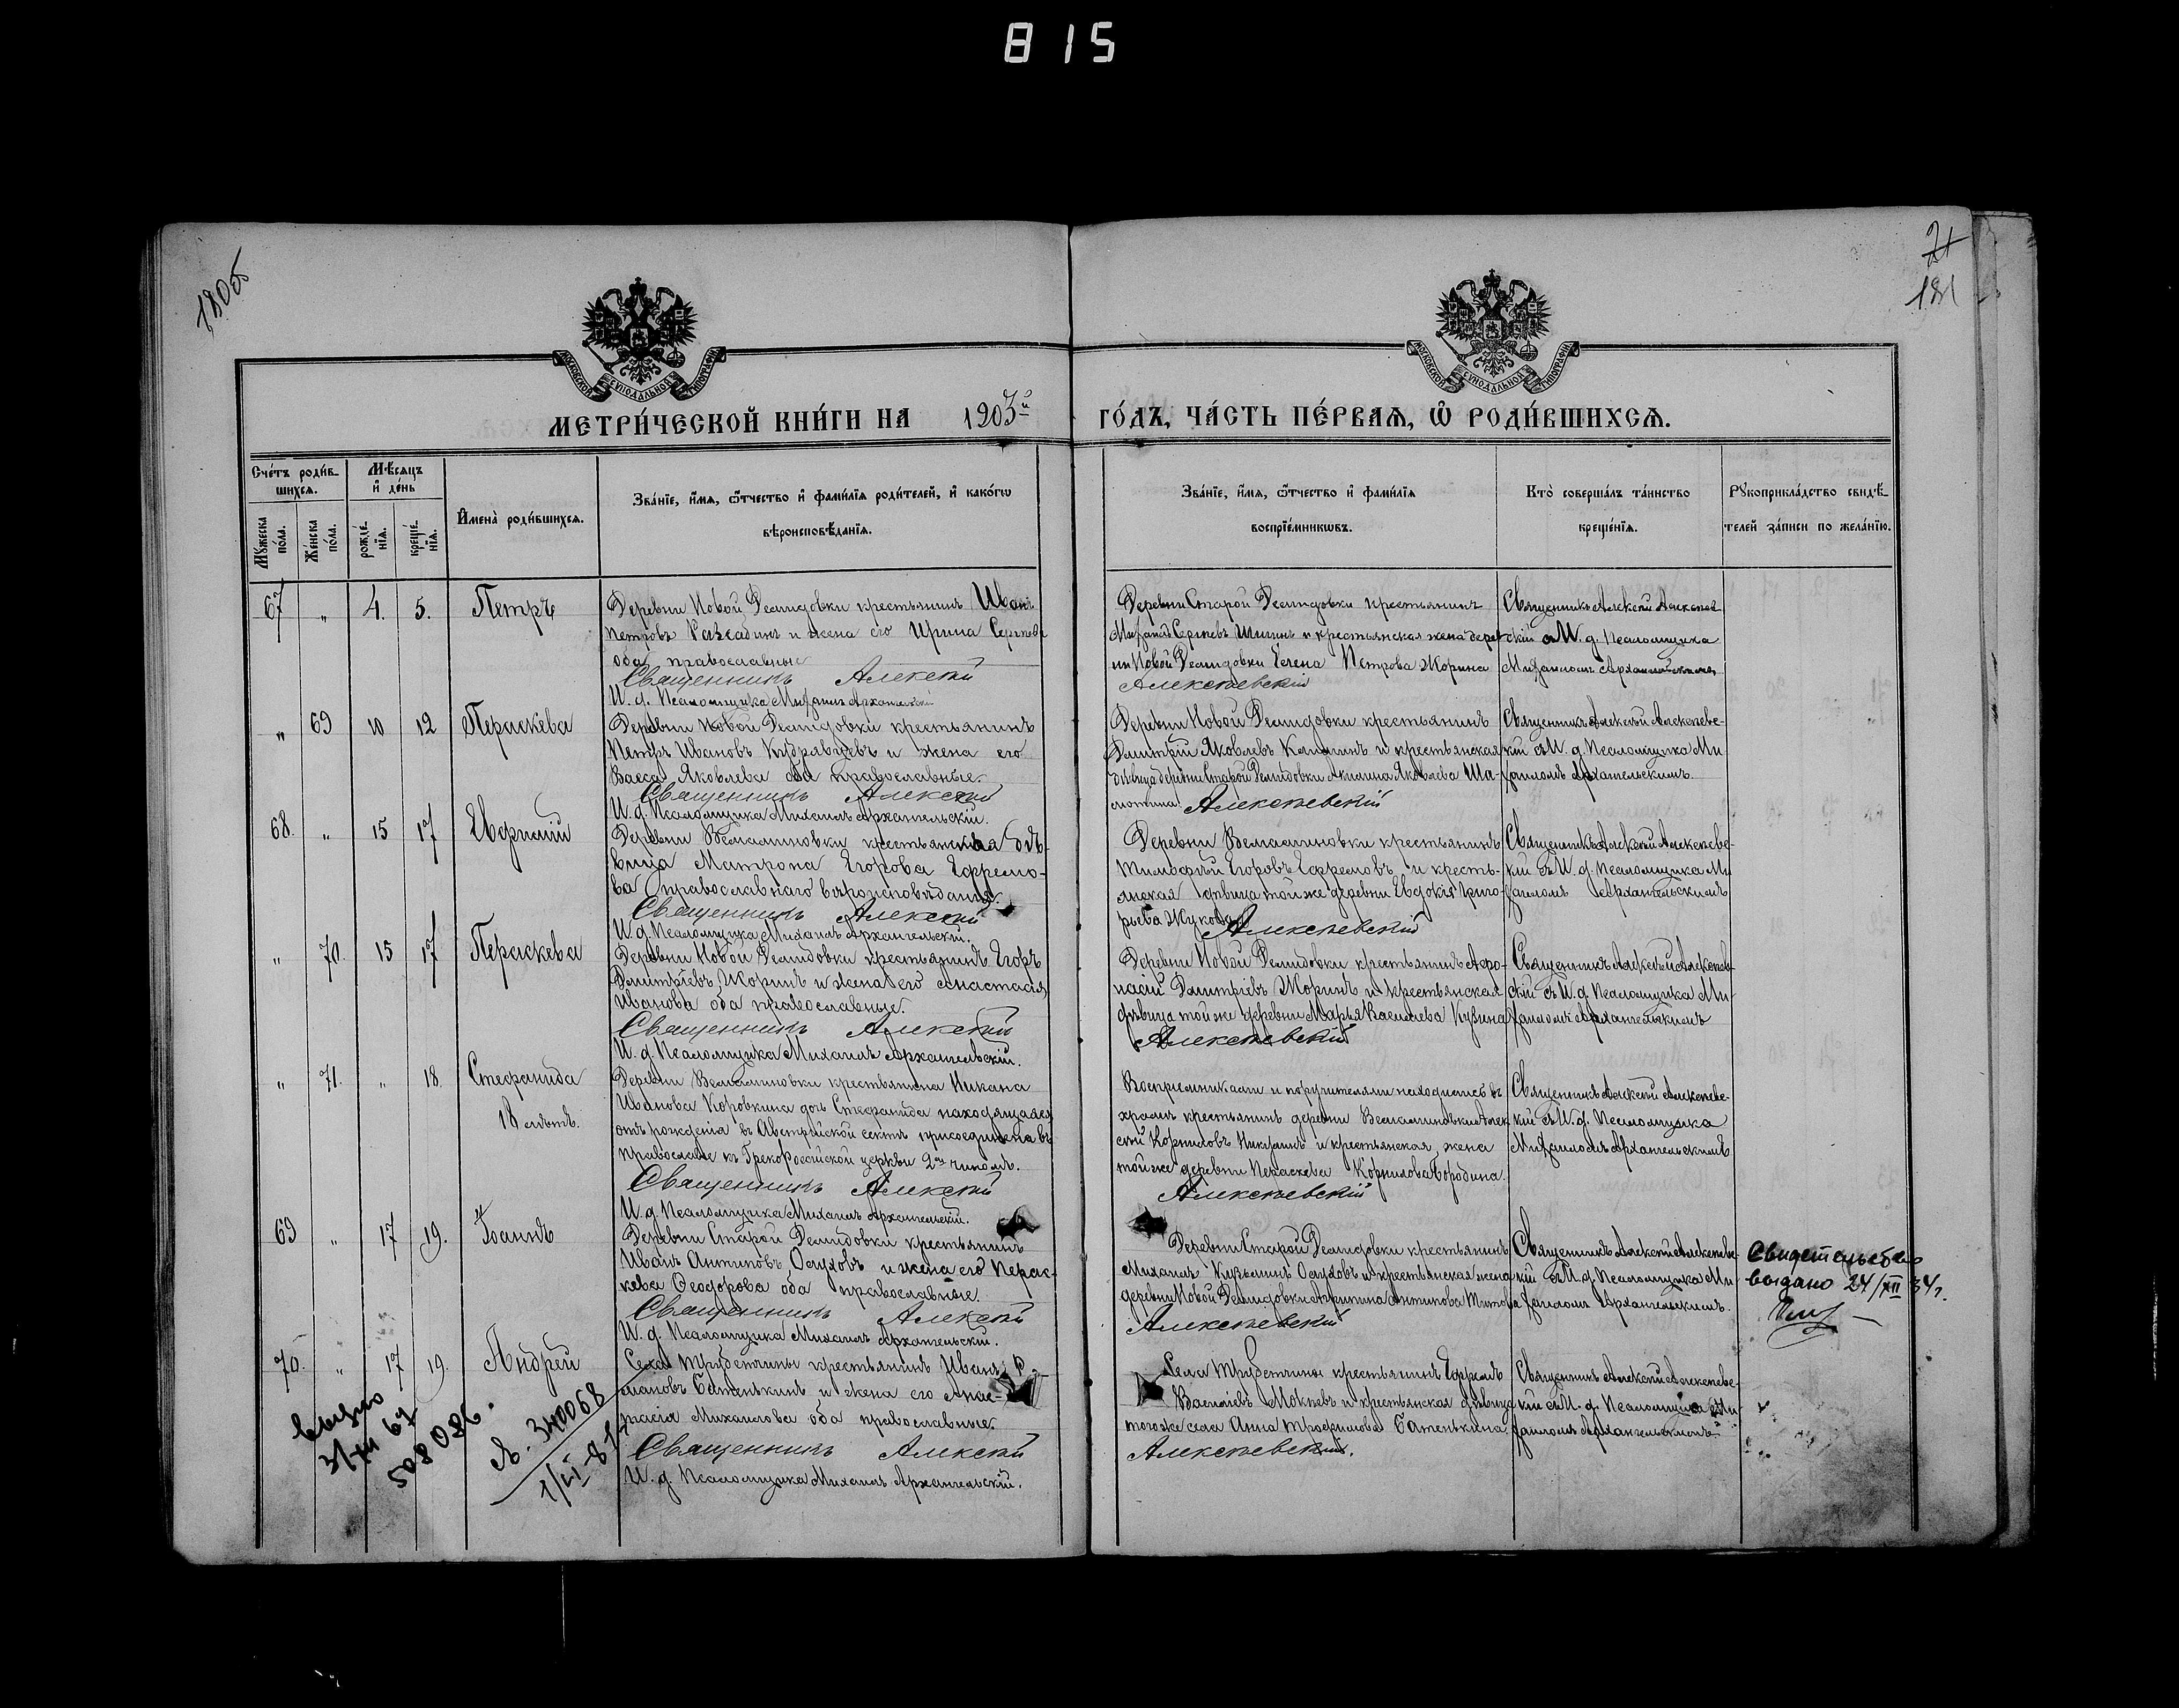 815
180об
21
181
МОСКОВСКОЙ СѴНОДАЛЬНОЙ ТИПОГРАФІИ
МОСКОВСКОЙ СѴНОДАЛЬНОЙ ТИПОГРАФІИ
МЕТРИ́ЧЕСКОЙ КНИ́ГИ НА 1903й ГО́ДЪ, ЧА́СТЬ ПЕ́РВАѦ, Ѽ РОДИ́ВШИХСѦ.
Сче́тъ роди́в-
шихсѧ.
Мꙋ́жеска по́ла.
Же́нска по́ла.
Мѣ́сѧцъ и҆ де́нь
рожде́нїѧ.
креще́нїѧ.
И҆мена̀ роди́вшихсѧ.
Зва́нїе, и҆́мѧ, ѻ҆́тчество и҆ фами́лїѧ роди́телей, и҆ како́гѡ
вѣроисповѣ́данїѧ.
Зва́нїе, и҆́мѧ, ѻ҆́тчество и҆ фами́лїѧ
воспрїе́мникѡвъ.
Кто̀ соверша́лъ та́инство
креще́нїѧ.
Рꙋкоприкла́дство свидѣ́-
телей за́писи по жела́нїю.
67 " 4. 5. Петръ
Деревни Новой Демидовки крестьянинъ Иванъ
Петровъ и жена его Ирина Сергѣева
оба православные
Священникъ Алексѣй
И. д. Псаломщика Михаилъ Архангельскій
Деревни Старой Демидовки крестьянинъ
Михаилъ Сергѣевъ Шишинъ и крестьянская жена дерев-
ни Новой Демидовки Елена Петрова Жорина
Алексѣевскій
Священникъ Алексѣй Алексѣев-
скій съ И. д. Псаломщика
Михаиломъ Архангельскимъ
" 69 10 12 Параскева
Деревни Новой Демидовки крестьянинъ
Петръ Ивановъ Кудрявцевъ и жена его
Васса Яковлева оба православные.
Священникъ Алексѣй
И. д. Псаломщика Михаилъ Архангельскій.
Деревни Новой Демидовки крестьянинъ
Димитрій Яковлевъ Калининъ и крестьянская
дѣвица деревни Старой Демидовки Акилина Яковлева Ша-
мотина. Алексѣевскій
Священникъ Алексѣй Алексѣевс-
кій съ И. д. Псаломщика Ми-
хаиломъ Архангельскимъ.
68. " 15 17 Евѳимій
Деревни Вельяминовки крестьянская дѣ-
вица Матрона Егорова Ефремо-
ва православнаго вѣроисповѣданія.
Священникъ Алексѣй
И. д. Псаломщика Михаилъ Архангельскій.
Деревни Вельяминовки крестьянинъ
Тимофѣй Егоровъ Ефремовъ и кресть-
янская дѣвица той же деревни Евдокія Григо-
рьева Жукова Алексѣевскій
Священникъ Алексѣй Алексѣевс-
кій съ И. д. Псаломщика Ми-
хаиломъ Архангельскимъ
" 70. 15 17 Параскева
Деревни Новой Демидовки крестьянинъ Егоръ
Димитріевъ Жоринъ и жена его Анастасія
Иванова оба православные.
Священникъ Алексѣй
И. д. Псаломщика Михаилъ Архангельскій.
Деревни Новой Демидовки крестьянинъ Аѳа-
насій Димитріевъ Жоринъ и крестьянская
дѣвица той же деревни Марья Васильева Кузина
Алексѣевскій
Священникъ Алексѣй Алексѣев-
скій съ И. д. Псаломщика Ми-
хаиломъ Архангельскимъ
" 71. " 18. Стефанида
18 лѣтъ.
Деревни Вельяминовки крестьянина Никана
Иванова Коровкина дочь Стефанида находящаяся
отъ рожденія въ Австрійской сектѣ присоединена въ
православіе къ Грекороссійской церкви 2мъ чиномъ.
Священникъ Алексѣй
И. д. Псаломщика Михаилъ Архангельскій.
Воспріемниками и поручителями находились въ
храмѣ крестьянинъ деревни Вельяминовки Алек
сѣй Корниловъ Никулинъ и крестьянская жена
той же деревни Параскева Корнилова Бородина.
Алексѣевскій
Священникъ Алексѣй Алексѣевс-
кій съ И. д. Псаломщика
Михаиломъ Архангельскимъ
69 " 17 19. Іоаннъ
Деревни Старой Демидовки крестьянинъ
Иванъ Антиповъ Осуховъ и жена его Парас-
кева Ѳеодорова оба православные.
Священникъ Алексѣй
И. д. Псаломщика Михаилъ Архангельскій.
Деревни Старой Демидовки крестьянинъ
Михаилъ Кузьминъ Осуховъ и крестьянская жена
деревни Новой Демидовки Антипова Титова
Алексѣевскій
Священникъ Алексѣй Алексѣевс-
кій съ И. д. Псаломщика Ми-
хаиломъ Архангельскимъ.
Свидетельство
выдано 24/XII 34г.
70. " 17 19. Андрей
Села Трубетчины крестьянинъ Иванъ
мановъ Батенькинъ и жена его Анас-
тасія Михаилова оба православные.
Священникъ Алексѣй
И. д. Псаломщика Михаилъ Архангельскій.
Села Трубетчины крестьянинъ Ефремъ
Васильевъ Мокѣевъ и крестьянская дѣвица
того же села Анна Трофимова Батенькина
Алексѣевскій.
Священникъ Алексѣй Алексѣевс-
кій съ И. д. Псаломщика Ми-
хаиломъ Архангельскимъ
508086.
340068